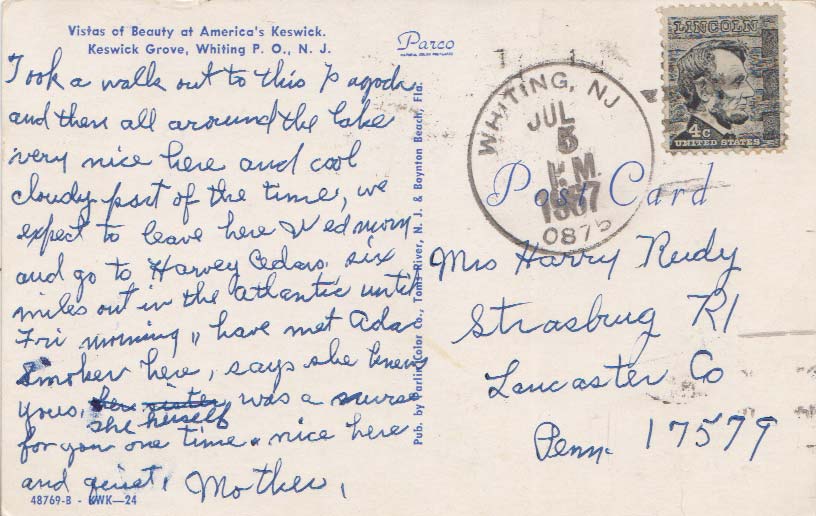 Vistas of Beauty at America's Keswick.
Keswick Grove, Whiting P. O., N. J.
Parco
Took a walk out to this Pagoda
and then all around the lake
very nice here and cool
cloudy part of the time, we
expect to leave here Wed morn
and go to Harvey Cedars, six
miles out in the atlantic until
Fri morning, have met Ada
Smoker here, says she knows
yous, her sister was a nurse
she herself
for you one time. nice here
and quiet, Mother,
48769-B - KWK—24
Pub. by Parlin Color Co., Toms River, N. J. & Boynton Beach, Fla.
WHITING, NJ
JUL
5
P.M.
1967
0875
LINCOLN
4c
UNITED STATES
Post Card
Mrs Harry Rudy
Strasbrug R1
Lancaster Co
Penn. 17579